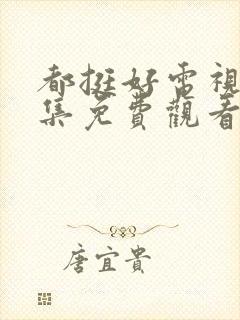 都挺好電視
集免費觀看
唐宜貴